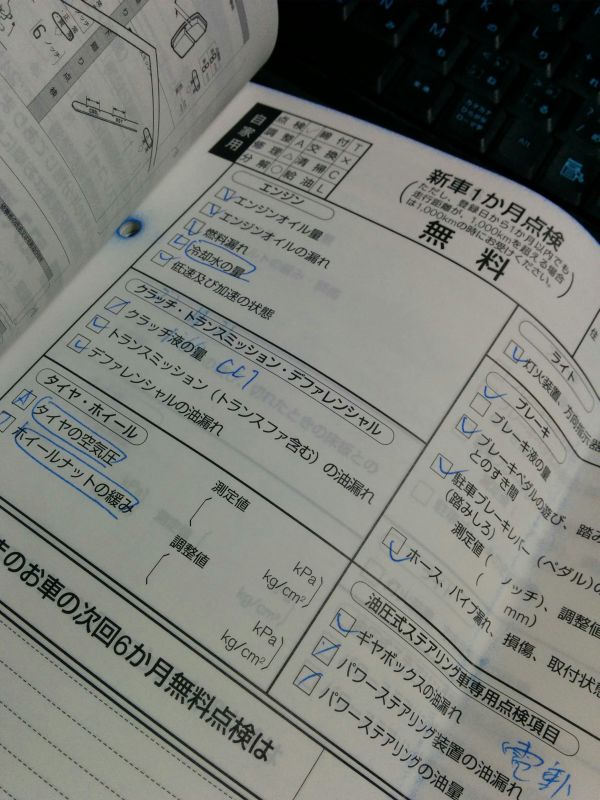 自家用
点検 レ 締付 T
調整 A 交換 ×
修理 △ 清掃 C
分解 ○ 給油 L
新車1か月点検
(ただし、登録日から1か月以内でも
走行距離が、1,000kmを超える場合
は1,000kmの時にお受けください。)
無料
エンジン
エンジンオイル量
エンジンオイルの漏れ
燃料漏れ
冷却水の量
低速及び加速の状態
クラッチ・トランスミッション・デファレンシャル
クラッチ液の量
トランスミッション(トランスファ含む)の油漏れ
デファレンシャルの油漏れ
タイヤ・ホイール
A タイヤの空気圧
ホイールナットの緩み
測定値
kPa
kg/cm²
調整値
kPa
kg/cm²
のお車の次回6か月無料点検は
ライト
灯火装置、方向指示
ブレーキ
ブレーキ液の量
ブレーキペダルの遊び、踏み
とのすき間
駐車ブレーキレバー(ペダル)の
(踏みしろ)
測定値( ノッチ)、調整値
( mm)
ホース、パイプ漏れ、損傷、取付状態
油圧式ステアリング車専用点検項目
ギヤボックスの油漏れ
パワーステアリング装置の油漏れ
パワーステアリングの油量
電動